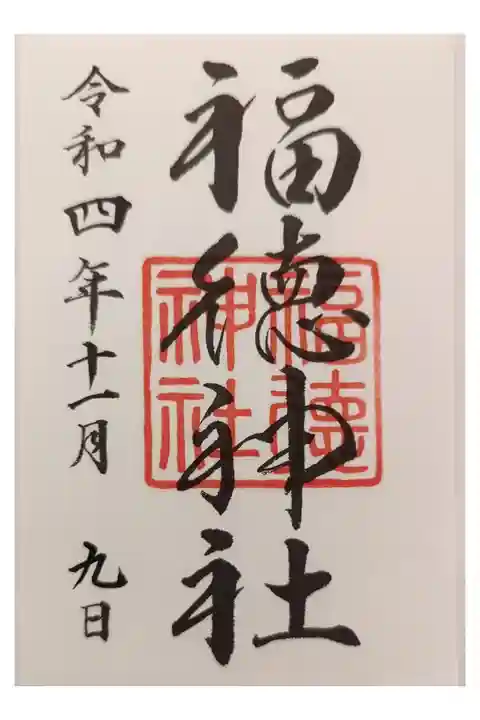 福徳神社
福徳神社
令和四年十一月 九日